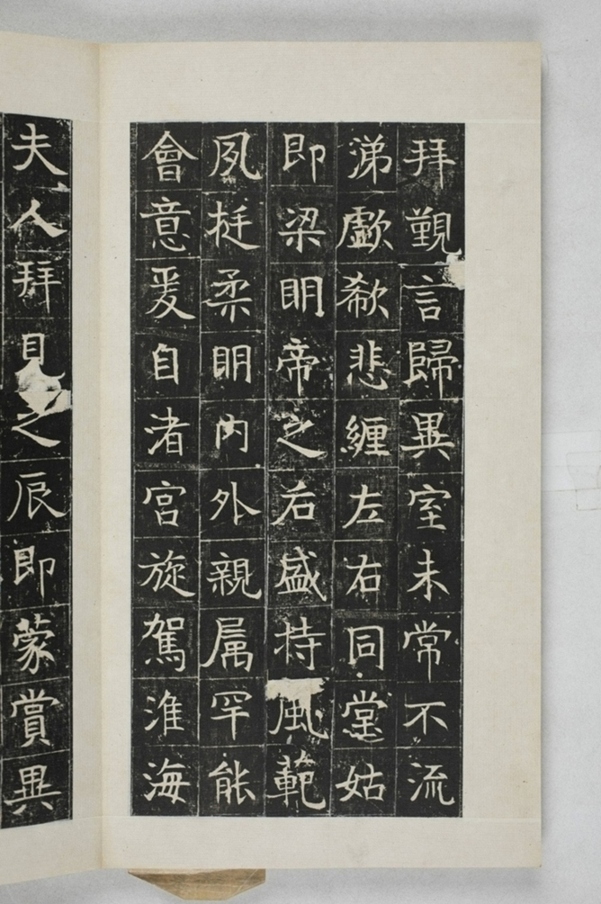 拜覲言歸異室未常不流
涕歔欷悲纏左右同堂姑
即梁明帝之后盛持風範
夙挺柔明內外親属罕能
會意爰自渚宮旋駕淮海
夫人拜見之辰即蒙賞異